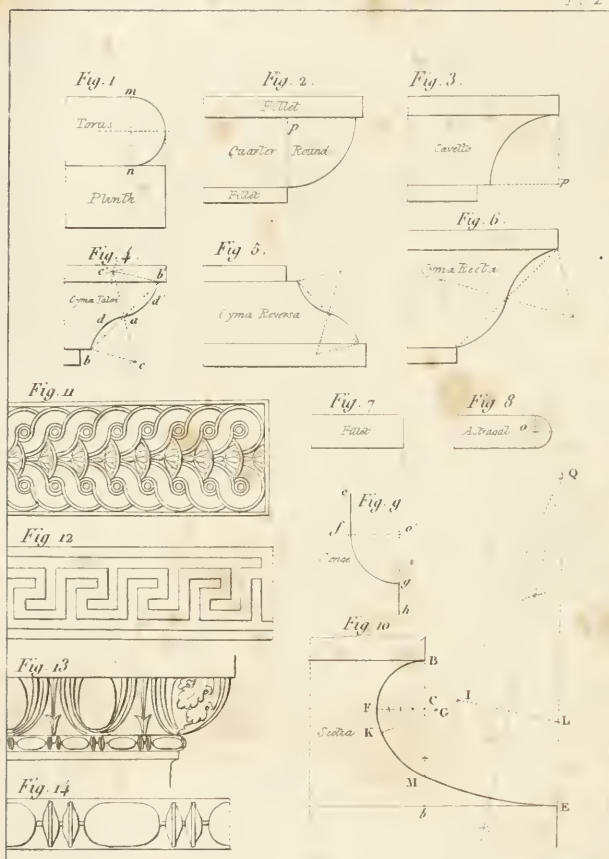 Fig. 1
m
Torus
n
Plinth
Fig. 2.
Fillet
p
Quarter Round
Fillet
Fig. 3
Cavetto
p
Fig. 4
c b
Cyma
d
d a
b c
Fig. 5.
Cyma Reversa
Fig. 6.
Cyma Recta
Fig. 7
Fillet
Fig 8
Astragal o
Fig. 9
e
f o
Conge
g
h
Fig 10
Q
B
C I
F G
L
K
Scotia
M
b E
Fig. 11
Fig. 12
Fig. 13
Fig. 14